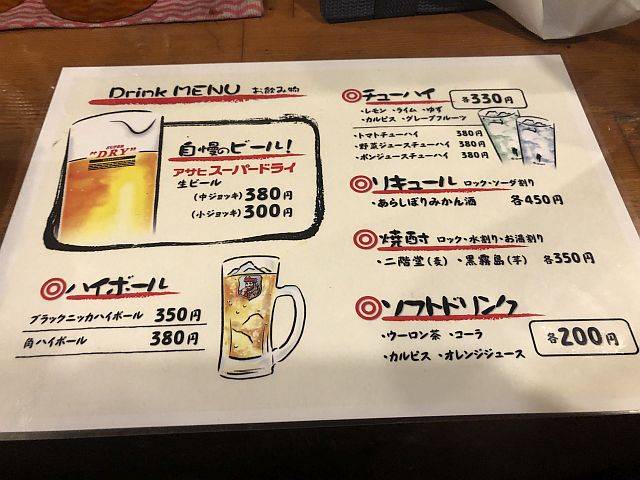 Drink MENU お飲み物
SUPER
"DRY"
自慢のビール!
アサヒスーパードライ
生ビール
(中ジョッキ) 380円
(小ジョッキ) 300円
◎ハイボール
ブラックニッカハイボール 350円
角ハイボール 380円
◎チューハイ 各330円
・レモン ・ライム ・ゆず
・カルピス ・グレープフルーツ
・トマトチューハイ 380円
・野菜ジュースチューハイ 380円
・ポンジュースチューハイ 380円
◎リキュール ロック・ソーダ割り
・あらしぼりみかん酒 各450円
◎焼酎 ロック・水割り・お湯割り
・二階堂(麦) ・黒霧島(芋) 各350円
◎ソフトドリンク
・ウーロン茶 ・コーラ
・カルピス ・オレンジジュース
各200円